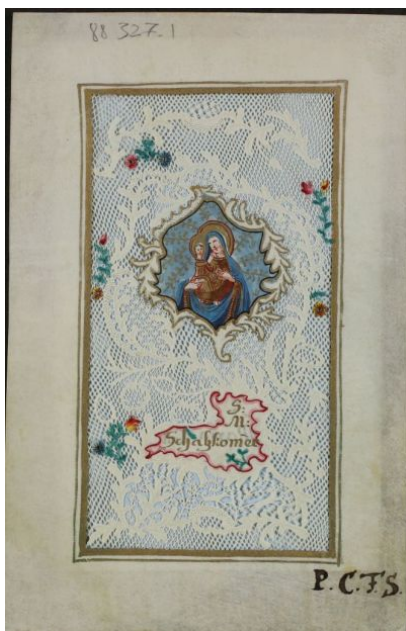 88 327.1
S:
M:
Schatzkomer
P. C. F. S.